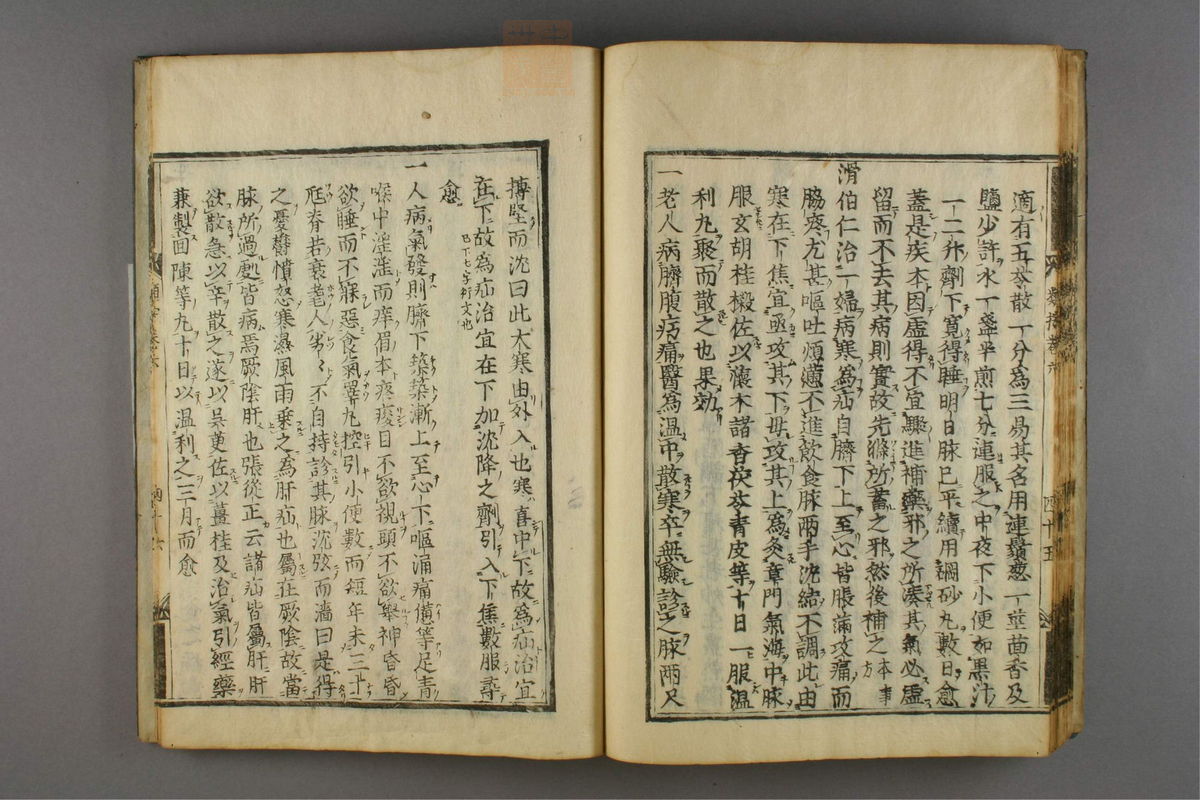 適有五苓散一分爲三易其名用連鬚葱一莖茴香及
鹽少許水一盞半煎七分連服之中夜下小便如黒汁
一二升劑下寛得睡明日脉已平續用硇砂丸數日愈
蓋是疾本因虚得不宜驟進補藥邪之所湊其氣必虚
留而不去其病則實故先滌所蓄之邪然後補之本事方
滑伯仁治一婦病寒爲疝自臍下上至心皆脹滿攻痛而
脇疼尤甚嘔吐煩懣不進飲食脉兩手沈結不調此由
寒在下焦宜亟攻其下毋攻其上爲灸章門氣海中脘
服玄胡桂椒佐以懷木諸香茯苓青皮等十日一服温
利丸聚而散之也果効
一老人病臍腹疠痛醫爲温中散寒卒無驗診之脉兩尺
搏堅而沈曰此大寒由外入也寒喜中下故爲疝治宜
在下故爲疝治宜在下加沈降之劑引入下焦數服尋
愈 已下七字衍文也
一人病氣發則臍下築築漸上至心下嘔涌痛懣等足青
喉中淫淫而痒眉本疼痠目不欲視頭不欲舉神昏昏
欲睡而不寐惡食氣睪丸控引小便數而短年未三十
尫脊若衰耄人劣々不自持診其脉沈弦而濇曰是得
之憂鬱憤怒寒濕風雨乘之爲肝疝也屬在厥陰故當
脉所過處皆病焉厥陰肝也張從正云諸疝皆屬肝肝
欲散急以辛散之遂以呉茰佐以薑桂及治氣引經藥
兼製回陳等丸十日以温利之三月而愈